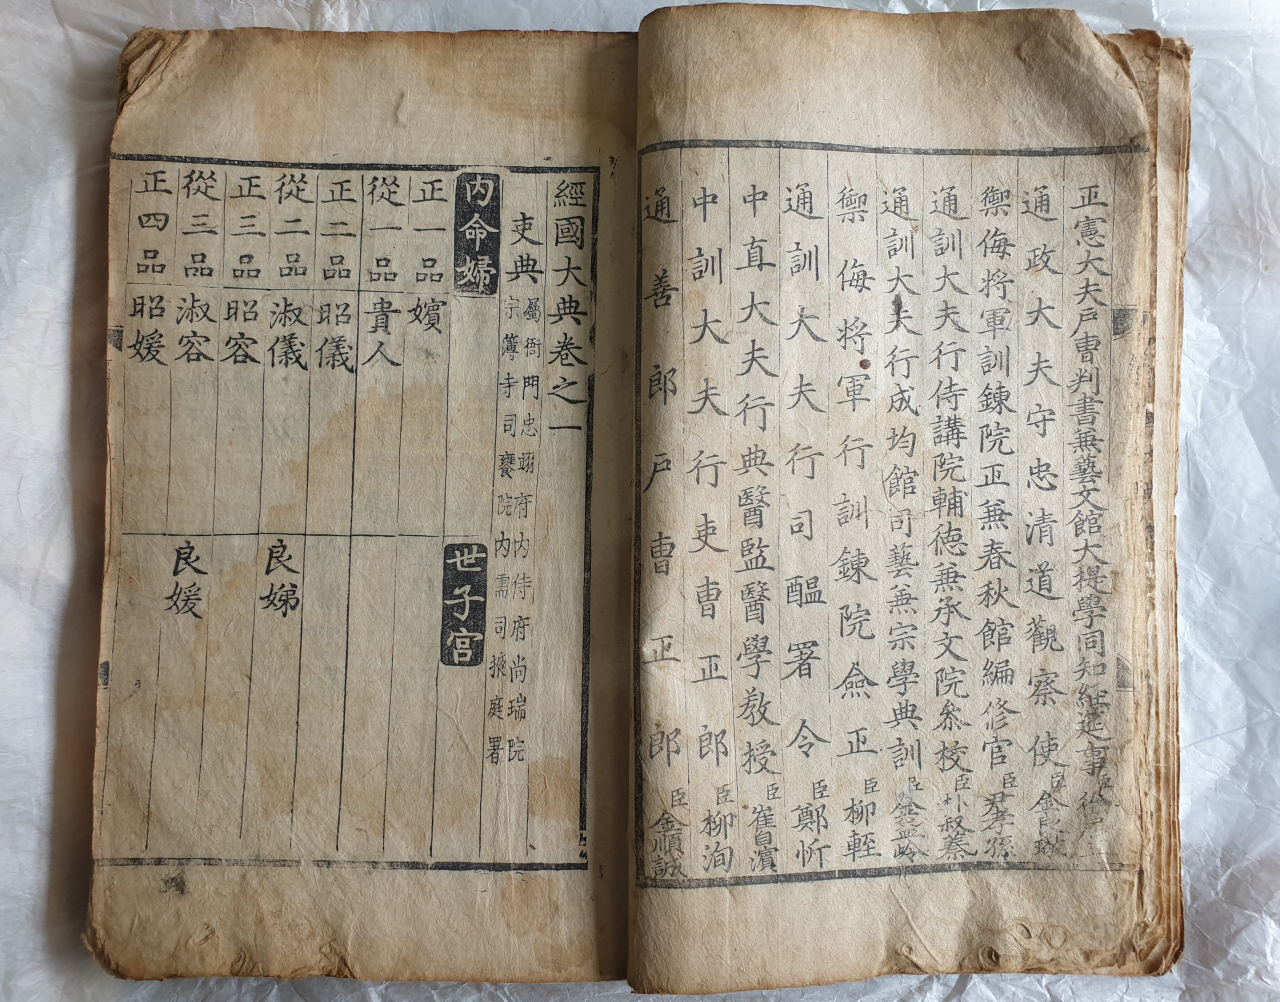 正憲大夫戶曹判書兼藝文館大提學同知經筵事臣徐居正
通政大夫守忠清道觀察使臣金良璥
禦侮將軍訓鍊院正兼春秋館編修官臣尹孝孫
通訓大夫行侍講院輔德兼承文院參校臣朴叔蓁
通訓大夫行成均館司藝兼宗學典訓臣
禦侮將軍行訓鍊院僉正臣柳輊
通訓大夫行司醞署令臣鄭忻
中直大夫行典醫監醫學敎授臣崔自濱
中訓大夫行吏曹正郎臣柳洵
通善郎戶曹正郎臣金順誠
經國大典卷之一
吏典
屬衙門忠翊府內侍府尙瑞院
宗簿寺司饔院內需司掖庭署
內命婦 世子宮
正一品嬪
從一品貴人
正二品昭儀
從二品淑儀 良娣
正三品昭容
從三品淑容 良媛
正四品昭媛